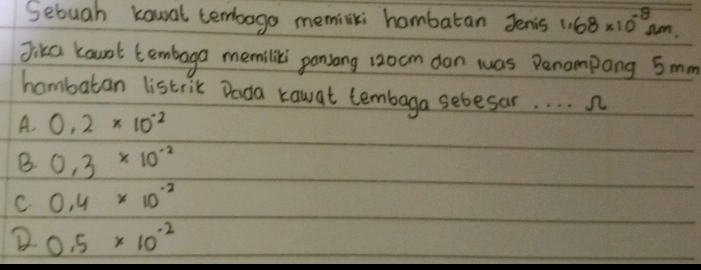 Sebuah kawat tembaga memiliki hambatan Jenis 1.68 × 10⁻⁸ Ωm.
Jika kawat tembaga memiliki panjang 120cm dan luas Penampang 5mm
hambatan listrik Pada kawat tembaga sebesar .... Ω
A. 0,2 × 10⁻²
B. 0,3 × 10⁻²
C. 0,4 × 10⁻²
D. 0,5 × 10⁻²